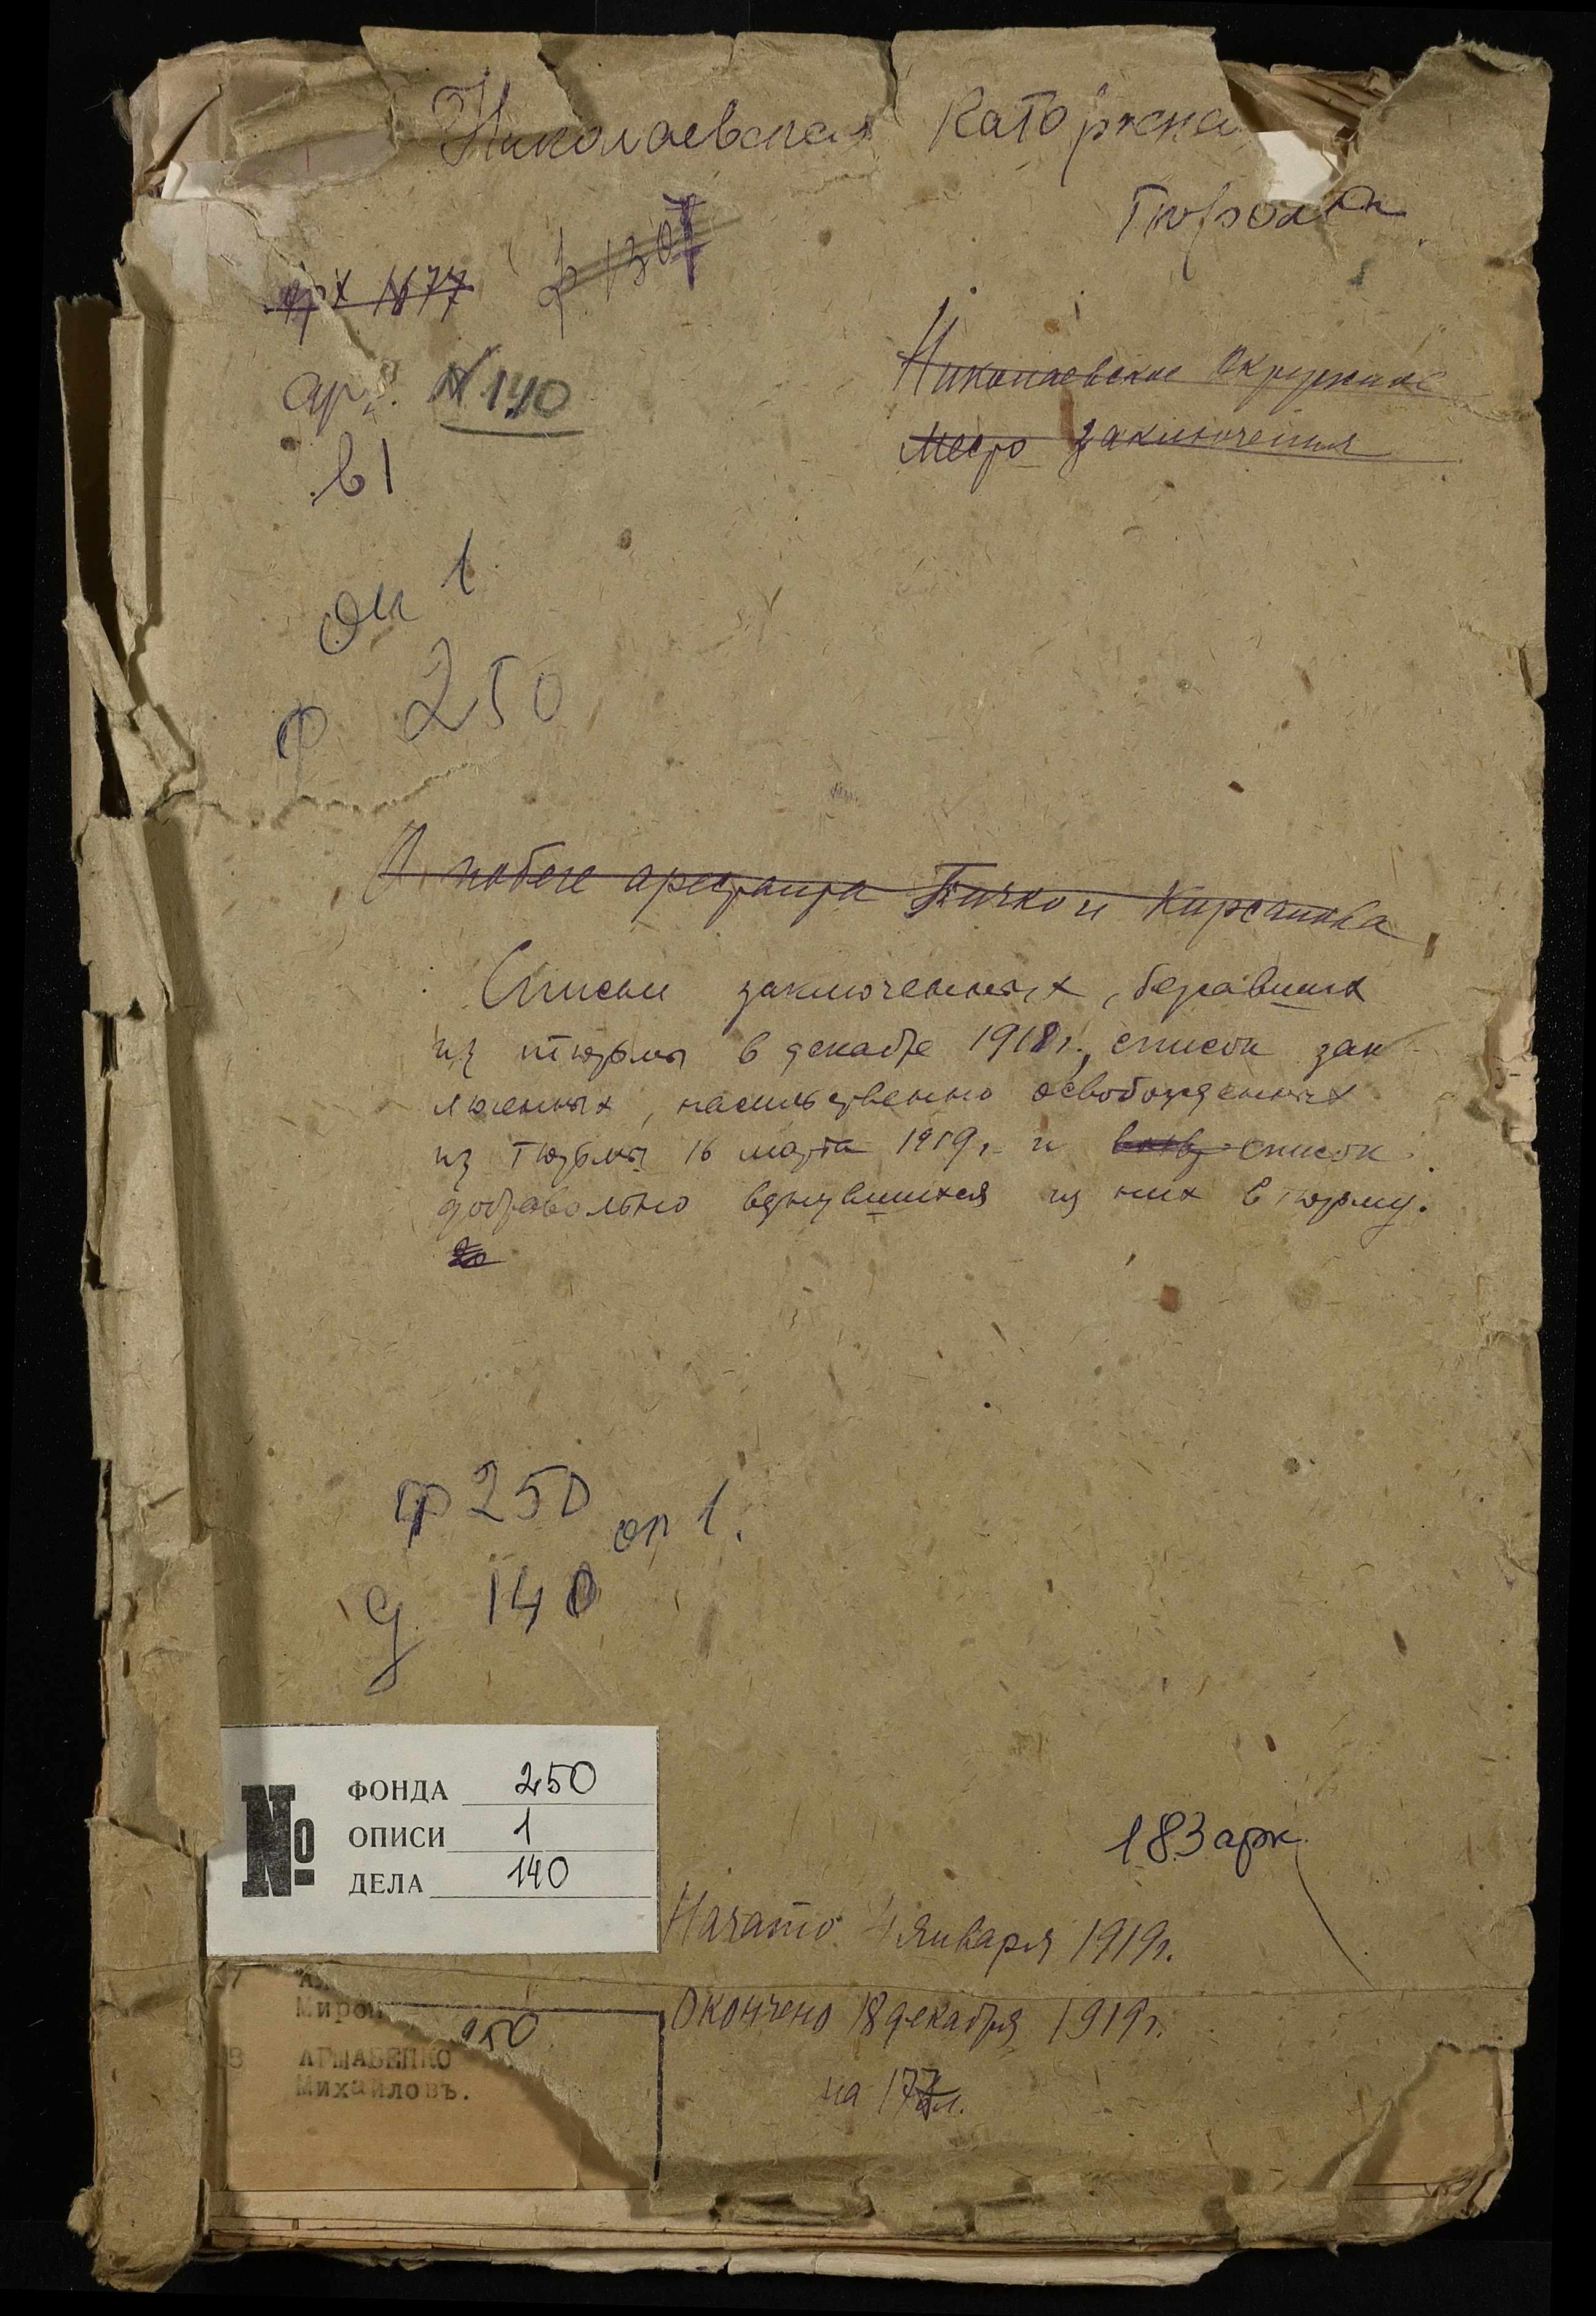 Николаевская Каторжна
Тюрьма
арх 1677
ф 1307
арх. N 140
в 1
Николаевское Окружное
место заключения
оп 1
ф 250
О побеге арестанта Бичко и Кирсанова
Списки заключенных, бежавших
из тюрьмы в декабре 1918 г., список зак
люченных, насильственно освобожденных
из тюрьмы 16 марта 1919 г. и список
добровольно вернувшихся из них в тюрьму.
ф 250 оп 1.
д 140
№
ФОНДА 250
ОПИСИ 1
ДЕЛА 140
183 арк.
Начато 4 января 1919 г.
Окончено 18 декабря 1919 г.
на 177 л.
Мирон
250
Михайловъ.